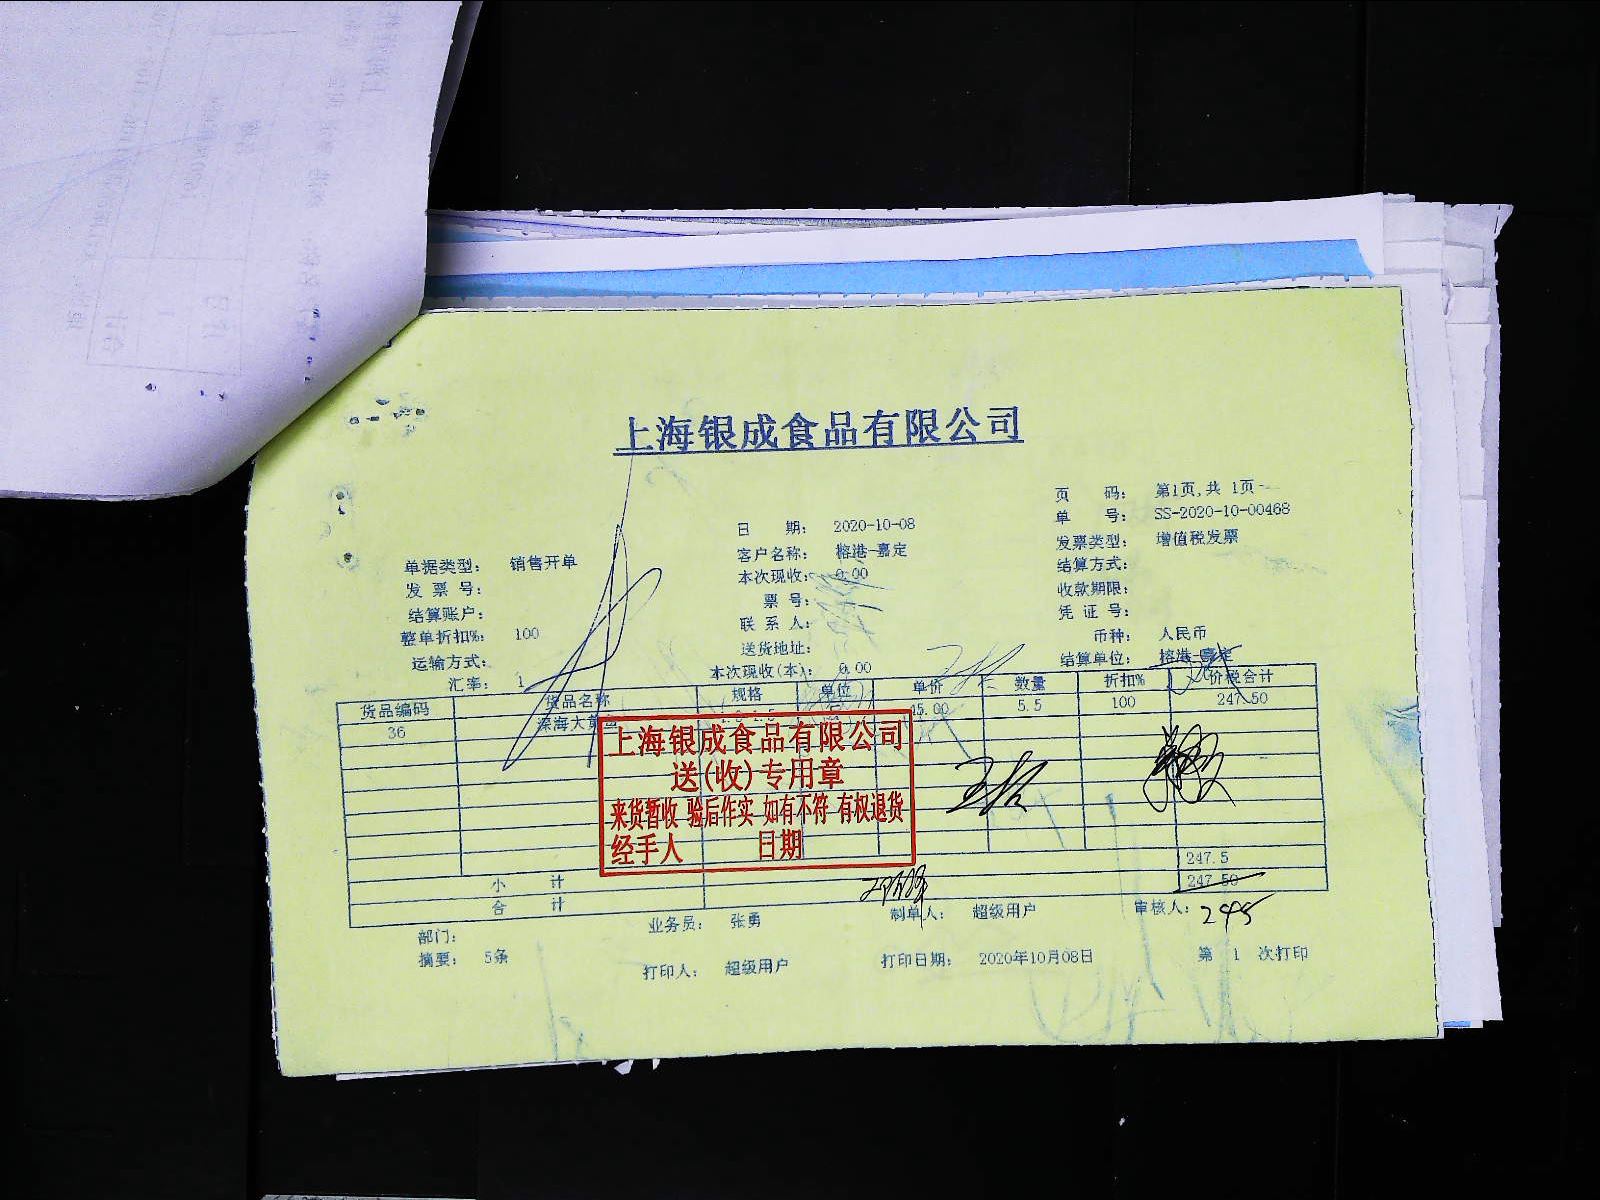 上海银成食品有限公司
页 码： 第1页,共 1页
日 期： 2020-10-08
单 号： SS-2020-10-00468
单据类型： 销售开单
客户名称： 榕港-嘉定
发票类型： 增值税发票
发 票 号：
本次现收： 0.00
结算方式：
结算账户：
票 号：
收款期限：
整单折扣%： 100
联 系 人：
凭 证 号：
运输方式：
送货地址：
币种： 人民币
汇率： 1
本次现收(本)： 0.00
结算单位： 榕港-嘉定
货品编码 货品名称 规格 单位 单价 数量 折扣% 价税合计
36 深海大黄鱼 45.00 5.5 100 247.50
上海银成食品有限公司
送(收)专用章
来货暂收 验后作实 如有不符 有权退货
经手人 日期
小 计 247.5
合 计 247.50
245
部门： 业务员： 张勇 制单人： 超级用户 审核人：
摘要： 5条 打印人： 超级用户 打印日期： 2020年10月08日 第 1 次打印